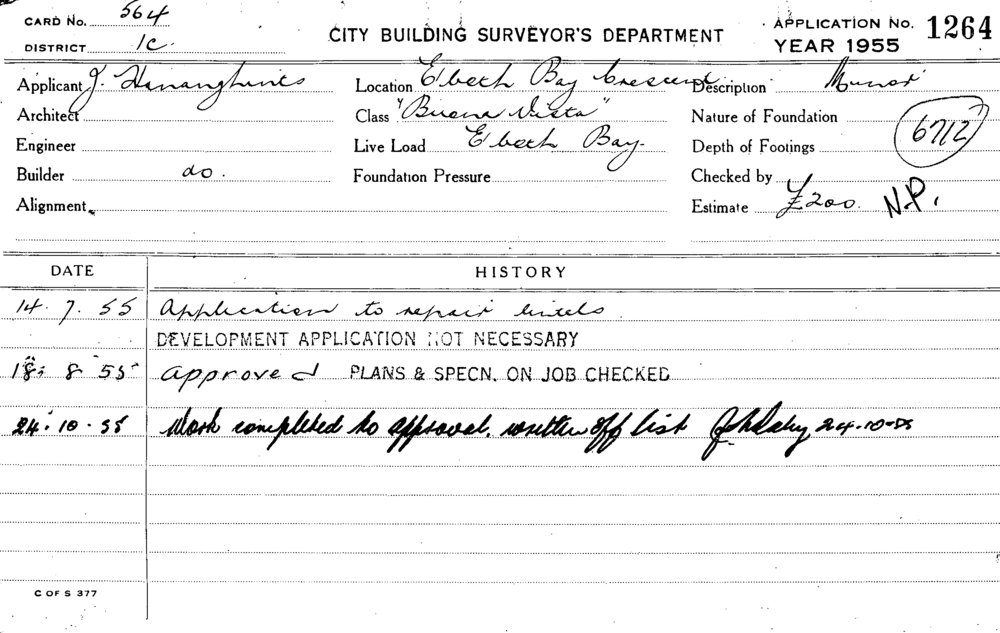 CARD No. 564
DISTRICT 1C.
CITY BUILDING SURVEYOR'S DEPARTMENT
APPLICATION No. 1264
YEAR 1955
Applicant J.
Location E'beth Bay Crescent
Description Minor
Architect
Class "Buena Vista"
Nature of Foundation
6712
Engineer
Live Load E'beth Bay.
Depth of Footings
Builder do.
Foundation Pressure
Checked by
Alignment
Estimate £200. N.P.
DATE HISTORY
14. 7. 55 Application to repair lintels.
DEVELOPMENT APPLICATION NOT NECESSARY
18. 8 55 Approved PLANS & SPECN. ON JOB CHECKED
24. 10. 55 Work completed to approval. written off list 24.10.55
C OF S 377